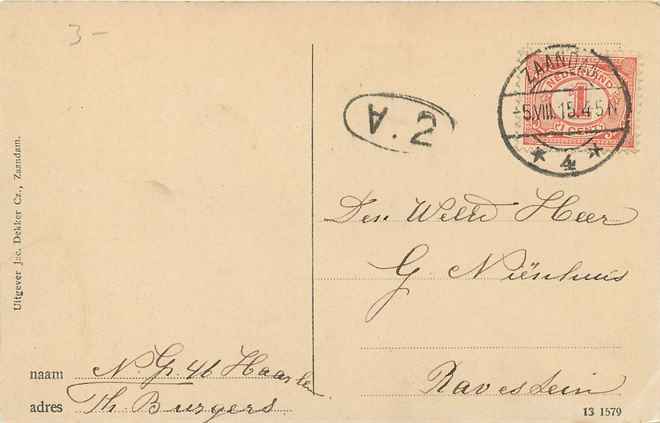 3-
ZAANDAM
-5.VIII.15.4-5N
4
NEDERLAND
1
CENT
A.2
Den Weled Heer
G. Niënhuis
Ravestein
Uitgever Jac. Dekker Cz., Zaandam.
naam N. G. 46 Haarlem
adres Th. Burgers
13 1579